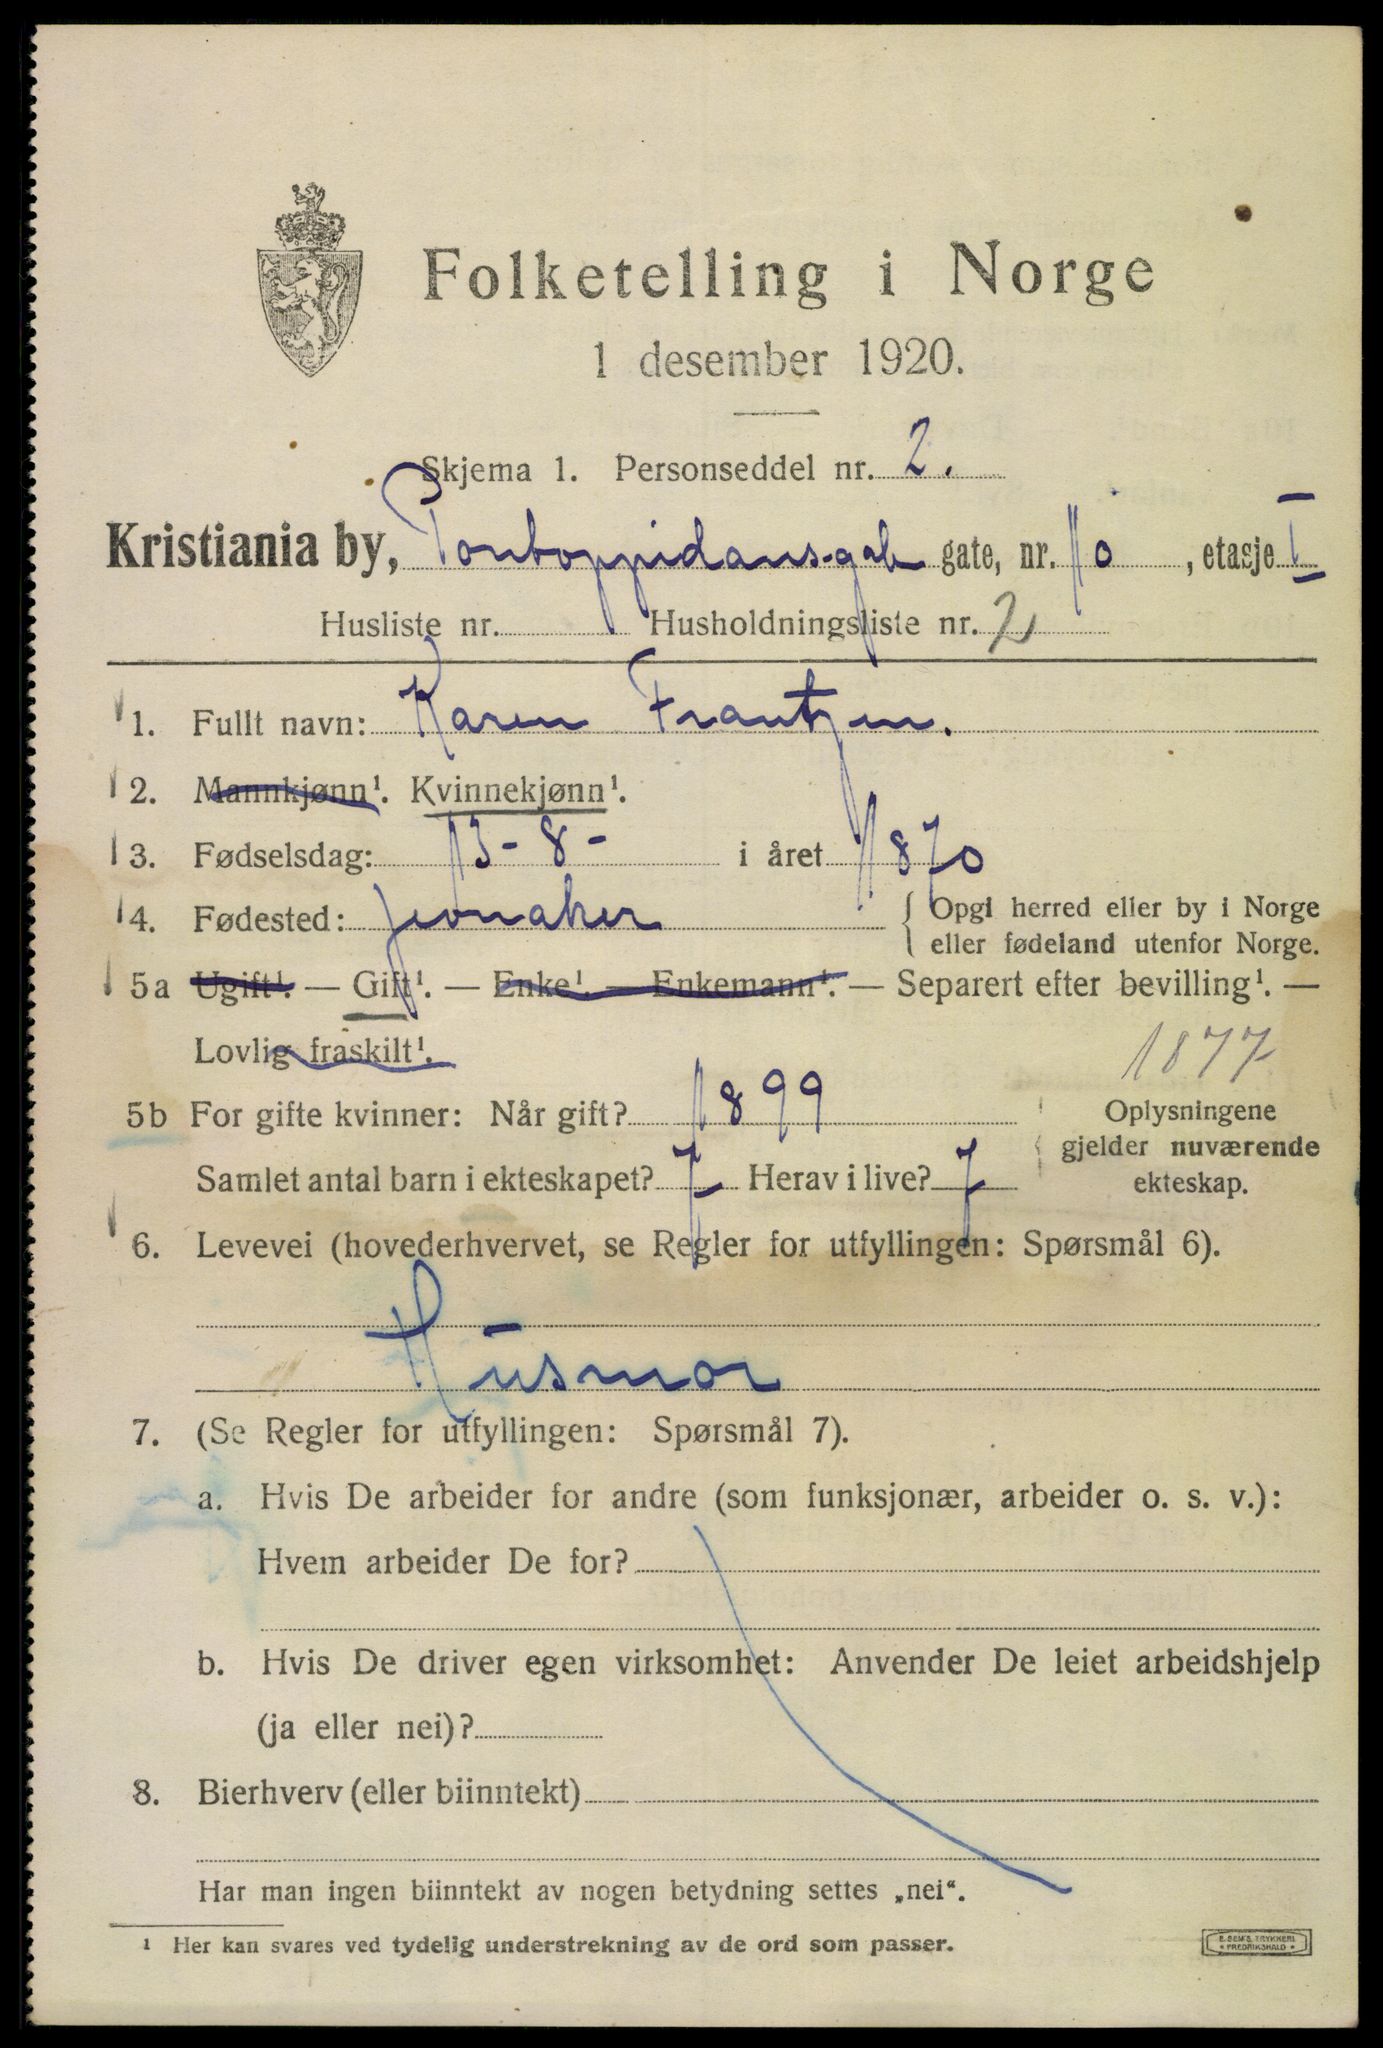 Folketelling i Norge
1 desember 1920.
Skjema 1. Personseddel nr. 2.
Kristiania by, Pontoppidans-gate gate, nr. 10, etasje I
Husliste nr. Husholdningsliste nr. 2
1. Fullt navn: Karen Frantzen.
2. Mannkjønn¹. Kvinnekjønn¹.
3. Fødselsdag: 13-8- i året 1870
4. Fødested: Jevnaker { Opgi herred eller by i Norge
eller fødeland utenfor Norge.
5a Ugift¹. — Gift¹. — Enke¹. — Enkemann¹. — Separert efter bevilling¹. —
Lovlig fraskilt¹.
1877
5b For gifte kvinner: Når gift? 1899
Samlet antal barn i ekteskapet? 7 Herav i live? 7
Oplysningene
gjelder nuværende
ekteskap.
6. Levevei (hovederhvervet, se Regler for utfyllingen: Spørsmål 6).
Husmor
7. (Se Regler for utfyllingen: Spørsmål 7).
a. Hvis De arbeider for andre (som funksjonær, arbeider o. s. v.):
Hvem arbeider De for?
b. Hvis De driver egen virksomhet: Anvender De leiet arbeidshjelp
(ja eller nei)?
8. Bierhverv (eller biinntekt)
Har man ingen biinntekt av nogen betydning settes „nei“.
¹ Her kan svares ved tydelig understrekning av de ord som passer.
E. SEM'S TRYKKERI
* FREDRIKSHALD *